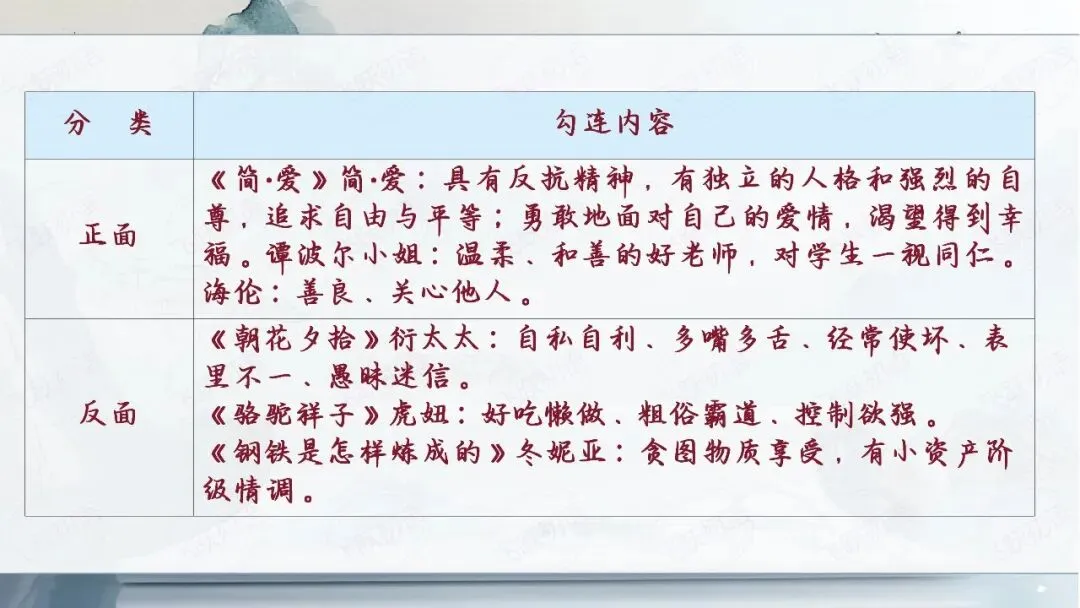 分 类
勾连内容
正面
《简·爱》简·爱：具有反抗精神，有独立的人格和强烈的自
尊，追求自由与平等；勇敢地面对自己的爱情，渴望得到幸
福。谭波尔小姐：温柔、和善的好老师，对学生一视同仁。
海伦：善良、关心他人。
反面
《朝花夕拾》衍太太：自私自利、多嘴多舌、经常使坏、表
里不一、愚昧迷信。
《骆驼祥子》虎妞：好吃懒做、粗俗霸道、控制欲强。
《钢铁是怎样炼成的》冬妮亚：贪图物质享受，有小资产阶
级情调。